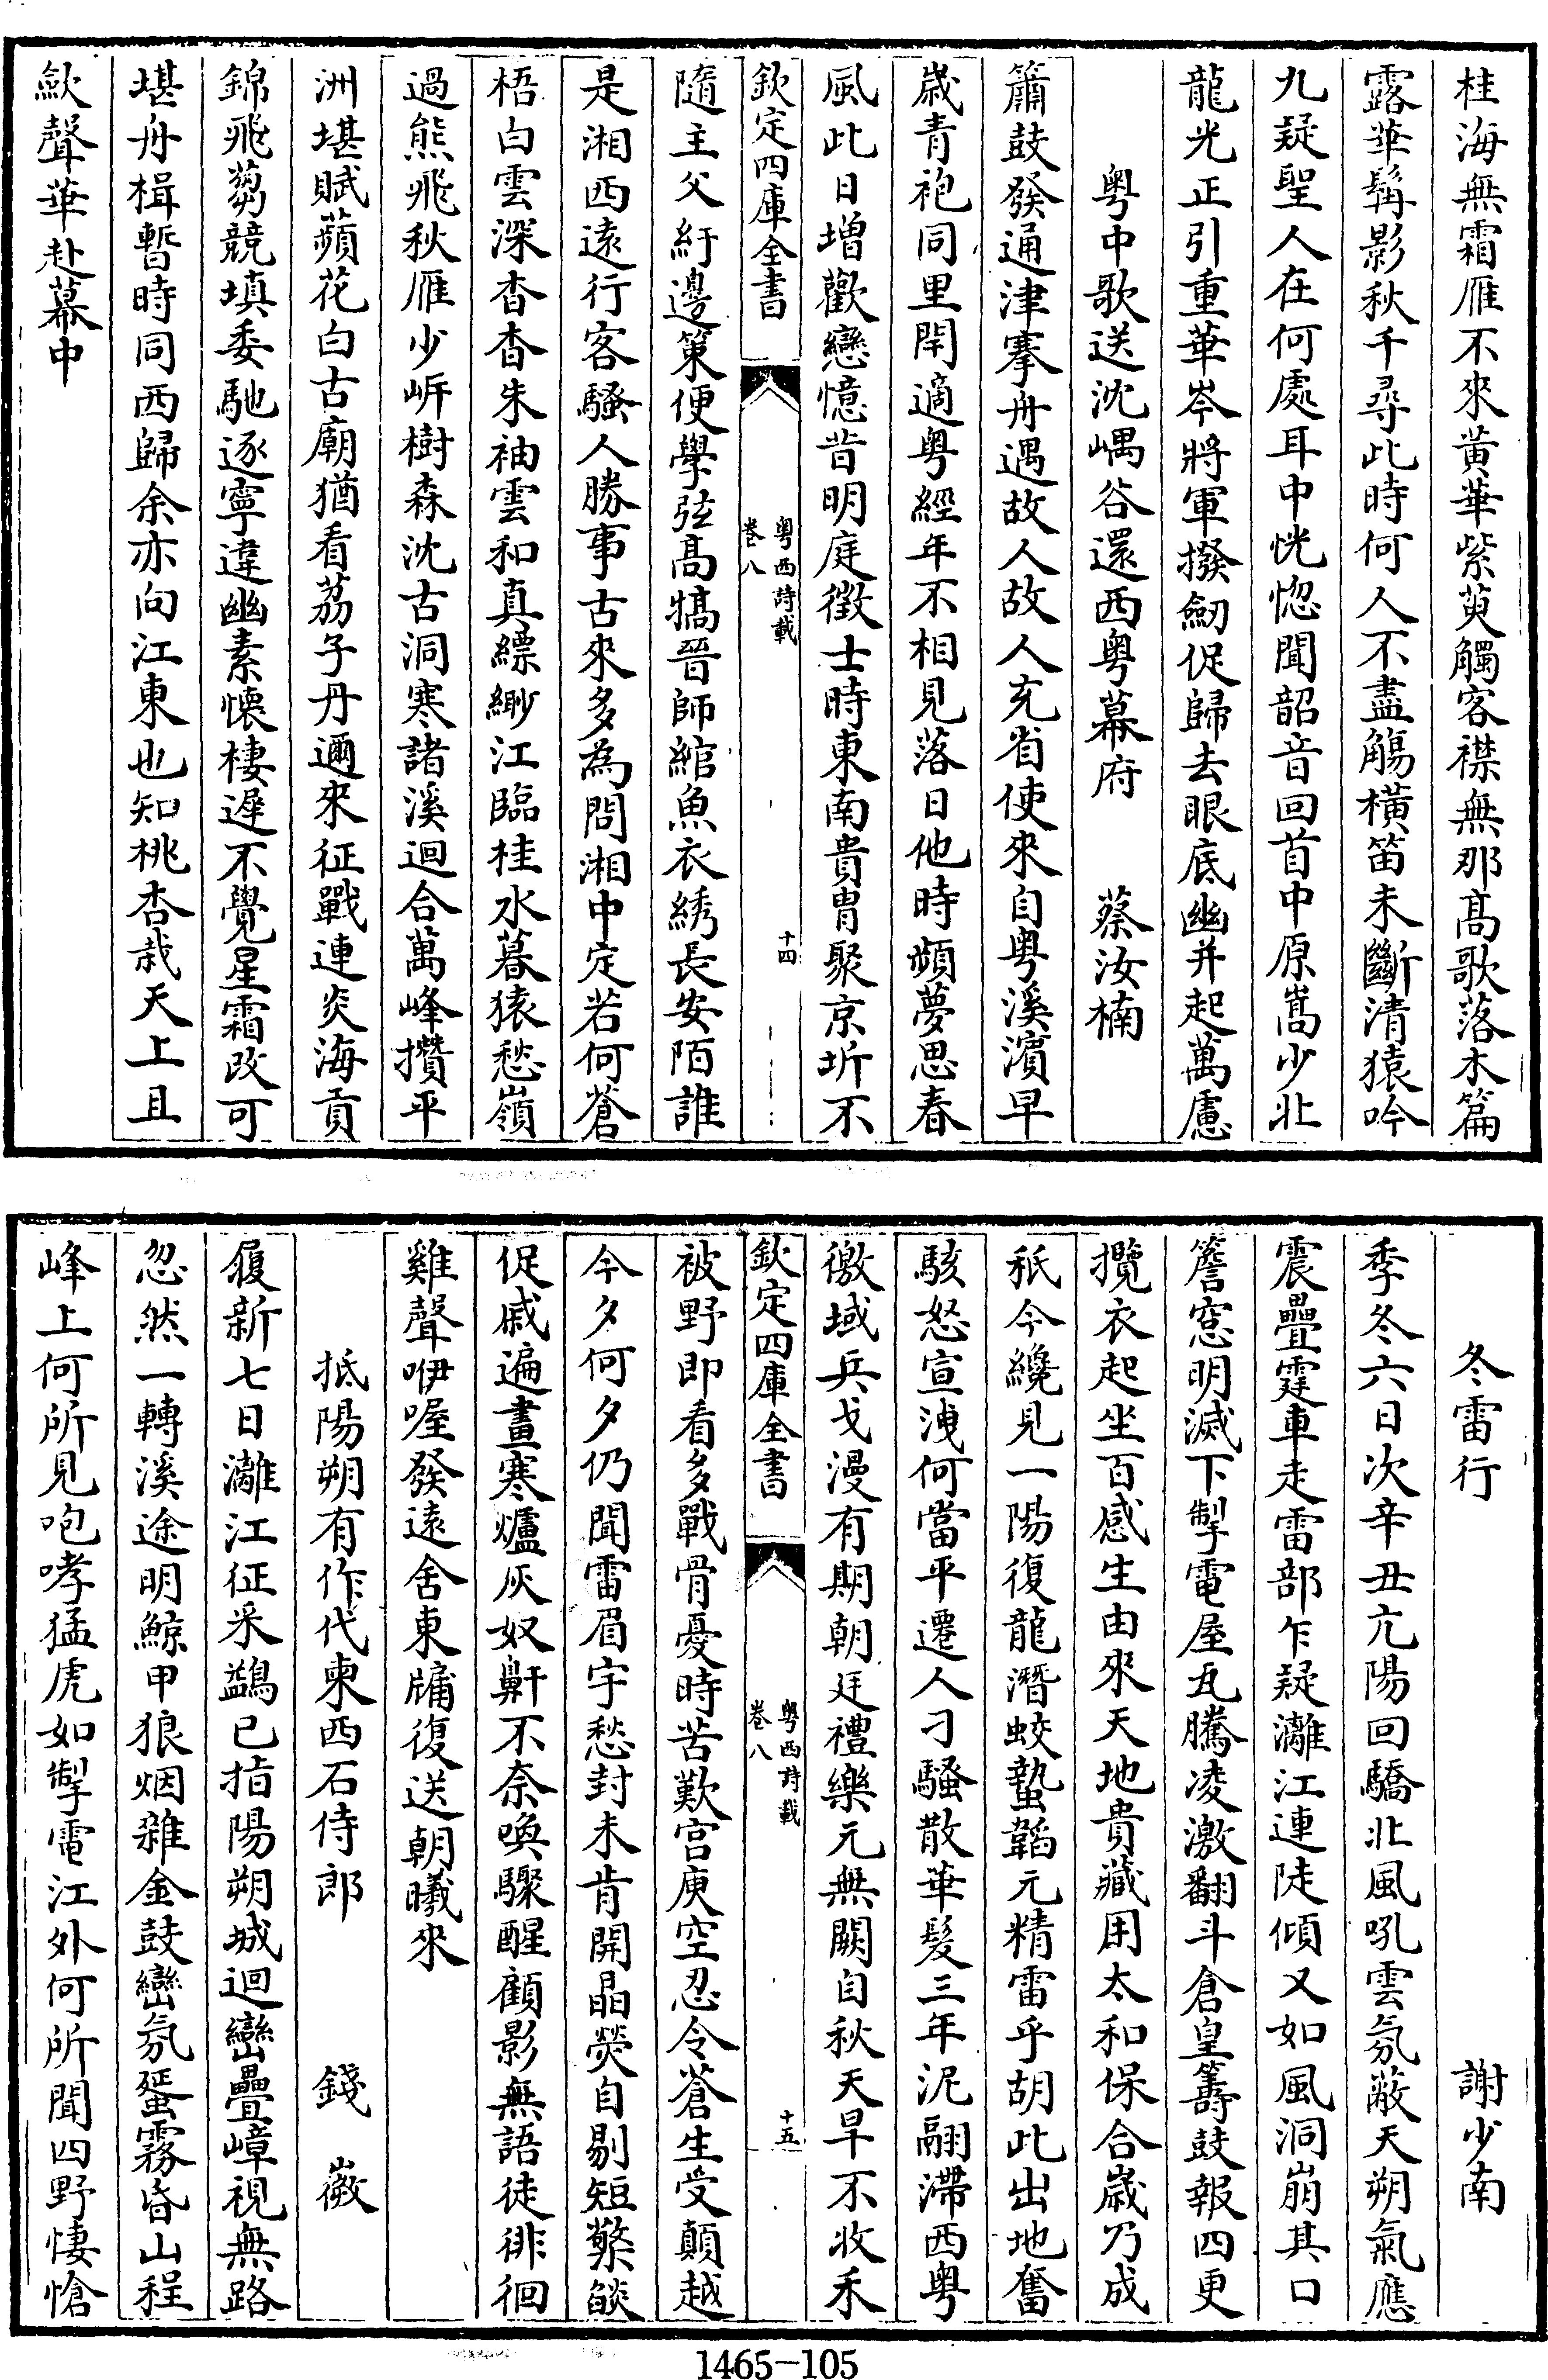 桂海無霜雁不來黄華紫萸觸客襟無那髙歌落木篇
露華髯影秋千尋此時何人不盡觴橫笛未斷清猿吟
九疑聖人在何處耳中恍惚聞韶音回首中原嵩少北
龍光正引重華岑將軍撥劒促歸去眼底幽并起萬慮
粤中歌送沈嵎谷還西粤幕府　蔡汝楠
簫鼓發通津搴舟遇故人故人充省使來自粤溪濵早
歳青袍同里閈適粤經年不相見落日他時頻夢思春
風此日增歡戀憶昔明庭徵士時東南貴胄聚京圻不
欽定四庫全書
粤西詩載
卷八
十四
隨主父紆邊策便學弦髙犒晉師綰魚衣綉長安陌誰
是湘西逺行客騷人勝事古來多為問湘中定若何蒼
梧白雲深杳杳朱袖雲和真縹緲江臨桂水暮猿愁嶺
過熊飛秋雁少㟁樹森沈古洞寒諸溪迴合萬峰攢平
洲堪賦蘋花白古廟猶看荔子丹邇來征戰連炎海貢
錦飛蒭競填委馳逐寧違幽素懷棲遲不覺星霜改可
堪舟楫暫時同西歸余亦向江東也知桃杏栽天上且
歛聲華赴幕中
冬雷行　謝少南
季冬六日次辛丑亢陽回驕北風吼雲氛蔽天朔氣應
震疊霆車走雷部乍疑灕江連陡傾又如風洞崩其口
簷窓明滅下掣電屋瓦騰凌激翻斗倉皇籌鼓報四更
攬衣起坐百感生由來天地貴藏用太和保合歳乃成
秖今纔見一陽復龍潛蛟蟄韜元精雷乎胡此出地奮
駭怒宣洩何當平遷人刁騷散華髮三年泥翮滯西粤
徼域兵戈漫有期朝廷禮樂元無闕自秋天旱不收禾
欽定四庫全書
粤西詩載
卷八
十五
被野即看多戰骨憂時苦歎宫庾空忍令蒼生受顛越
今夕何夕仍聞雷眉宇愁封未肯開晶熒自剔短檠燄
促戚遍畫寒爐灰奴鼾不奈喚驟醒顧影無語徒徘徊
雞聲咿喔發逺舍東牗復送朝曦來
抵陽朔有作代柬西石侍郎　錢嶶
履新七日灕江征采鷁已指陽朔城迴巒疊嶂視無路
忽然一轉溪途明鯨甲狼烟雜金鼓巒氛蜑霧昏山程
峰上何所見咆哮猛虎如掣電江外何所聞四野悽愴
1465-105